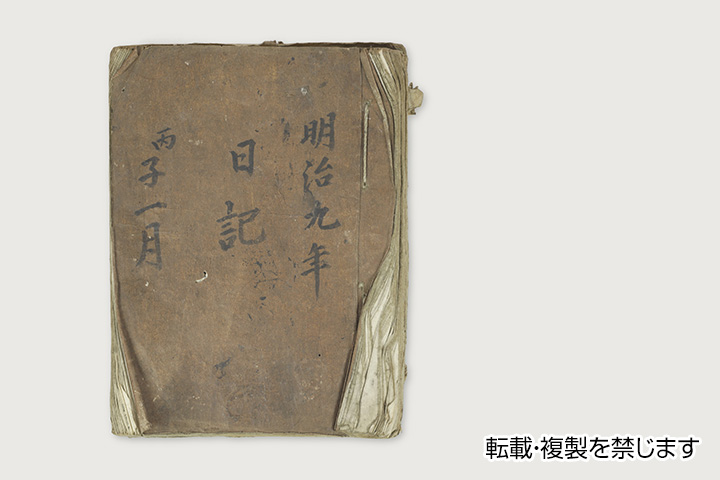 明治九年
日記
丙子一月
転載・複製を禁じます